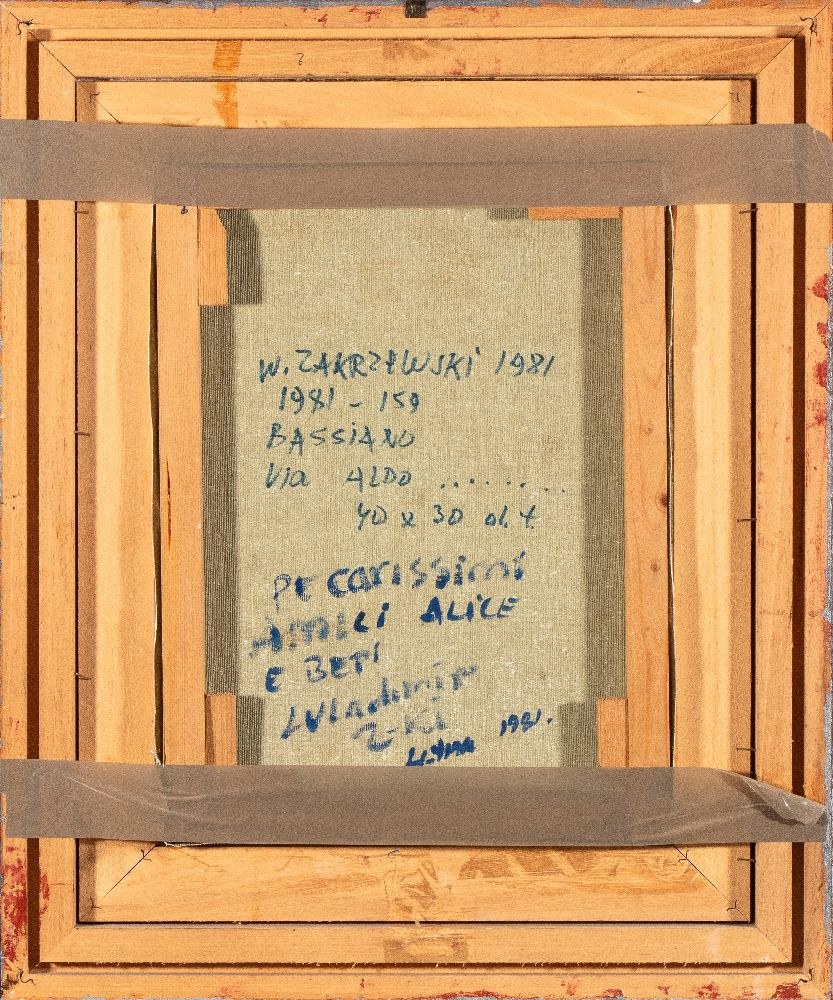 W. ZAKRZEWSKI 1981
1981 - 159
BASSIANO
Via ALDO .........
40 x 30 ol. t.
PE carissimi
AMICI ALICE
E BETI
Wladimir
Z-ki
1981.